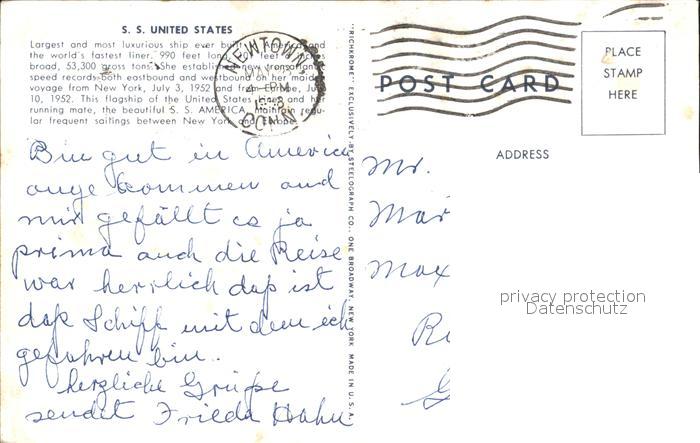 S. S. UNITED STATES
Largest and most luxurious ship ever built in America and
the world's fastest liner. 990 feet long, 101 feet
broad, 53,300 gross tons. She established new transatlantic
speed records both eastbound and westbound on her maiden
voyage from New York, July 3, 1952 and from Europe, July
10, 1952. This flagship of the United States Lines and her
running mate, the beautiful S. S. AMERICA, maintain regu-
lar frequent sailings between New York and Europe.
NEWTOWN,
4 - PM
CONN
POST CARD
PLACE
STAMP
HERE
ADDRESS
"RICHROME" EXCLUSIVELY BY STEELOGRAPH CO., ONE BROADWAY, NEW YORK MADE IN U.S.A.
Bin gut in America
ange kommen und
mir gefällt es ja
prima auch die Reise
war herrlich daß ist
daß Schiff mit dem ich
gefahren bin..
herzliche Grüße
sendet Frieda Hahn
Mr.
Mar
Max
Ri
G
privacy protection
Datenschutz